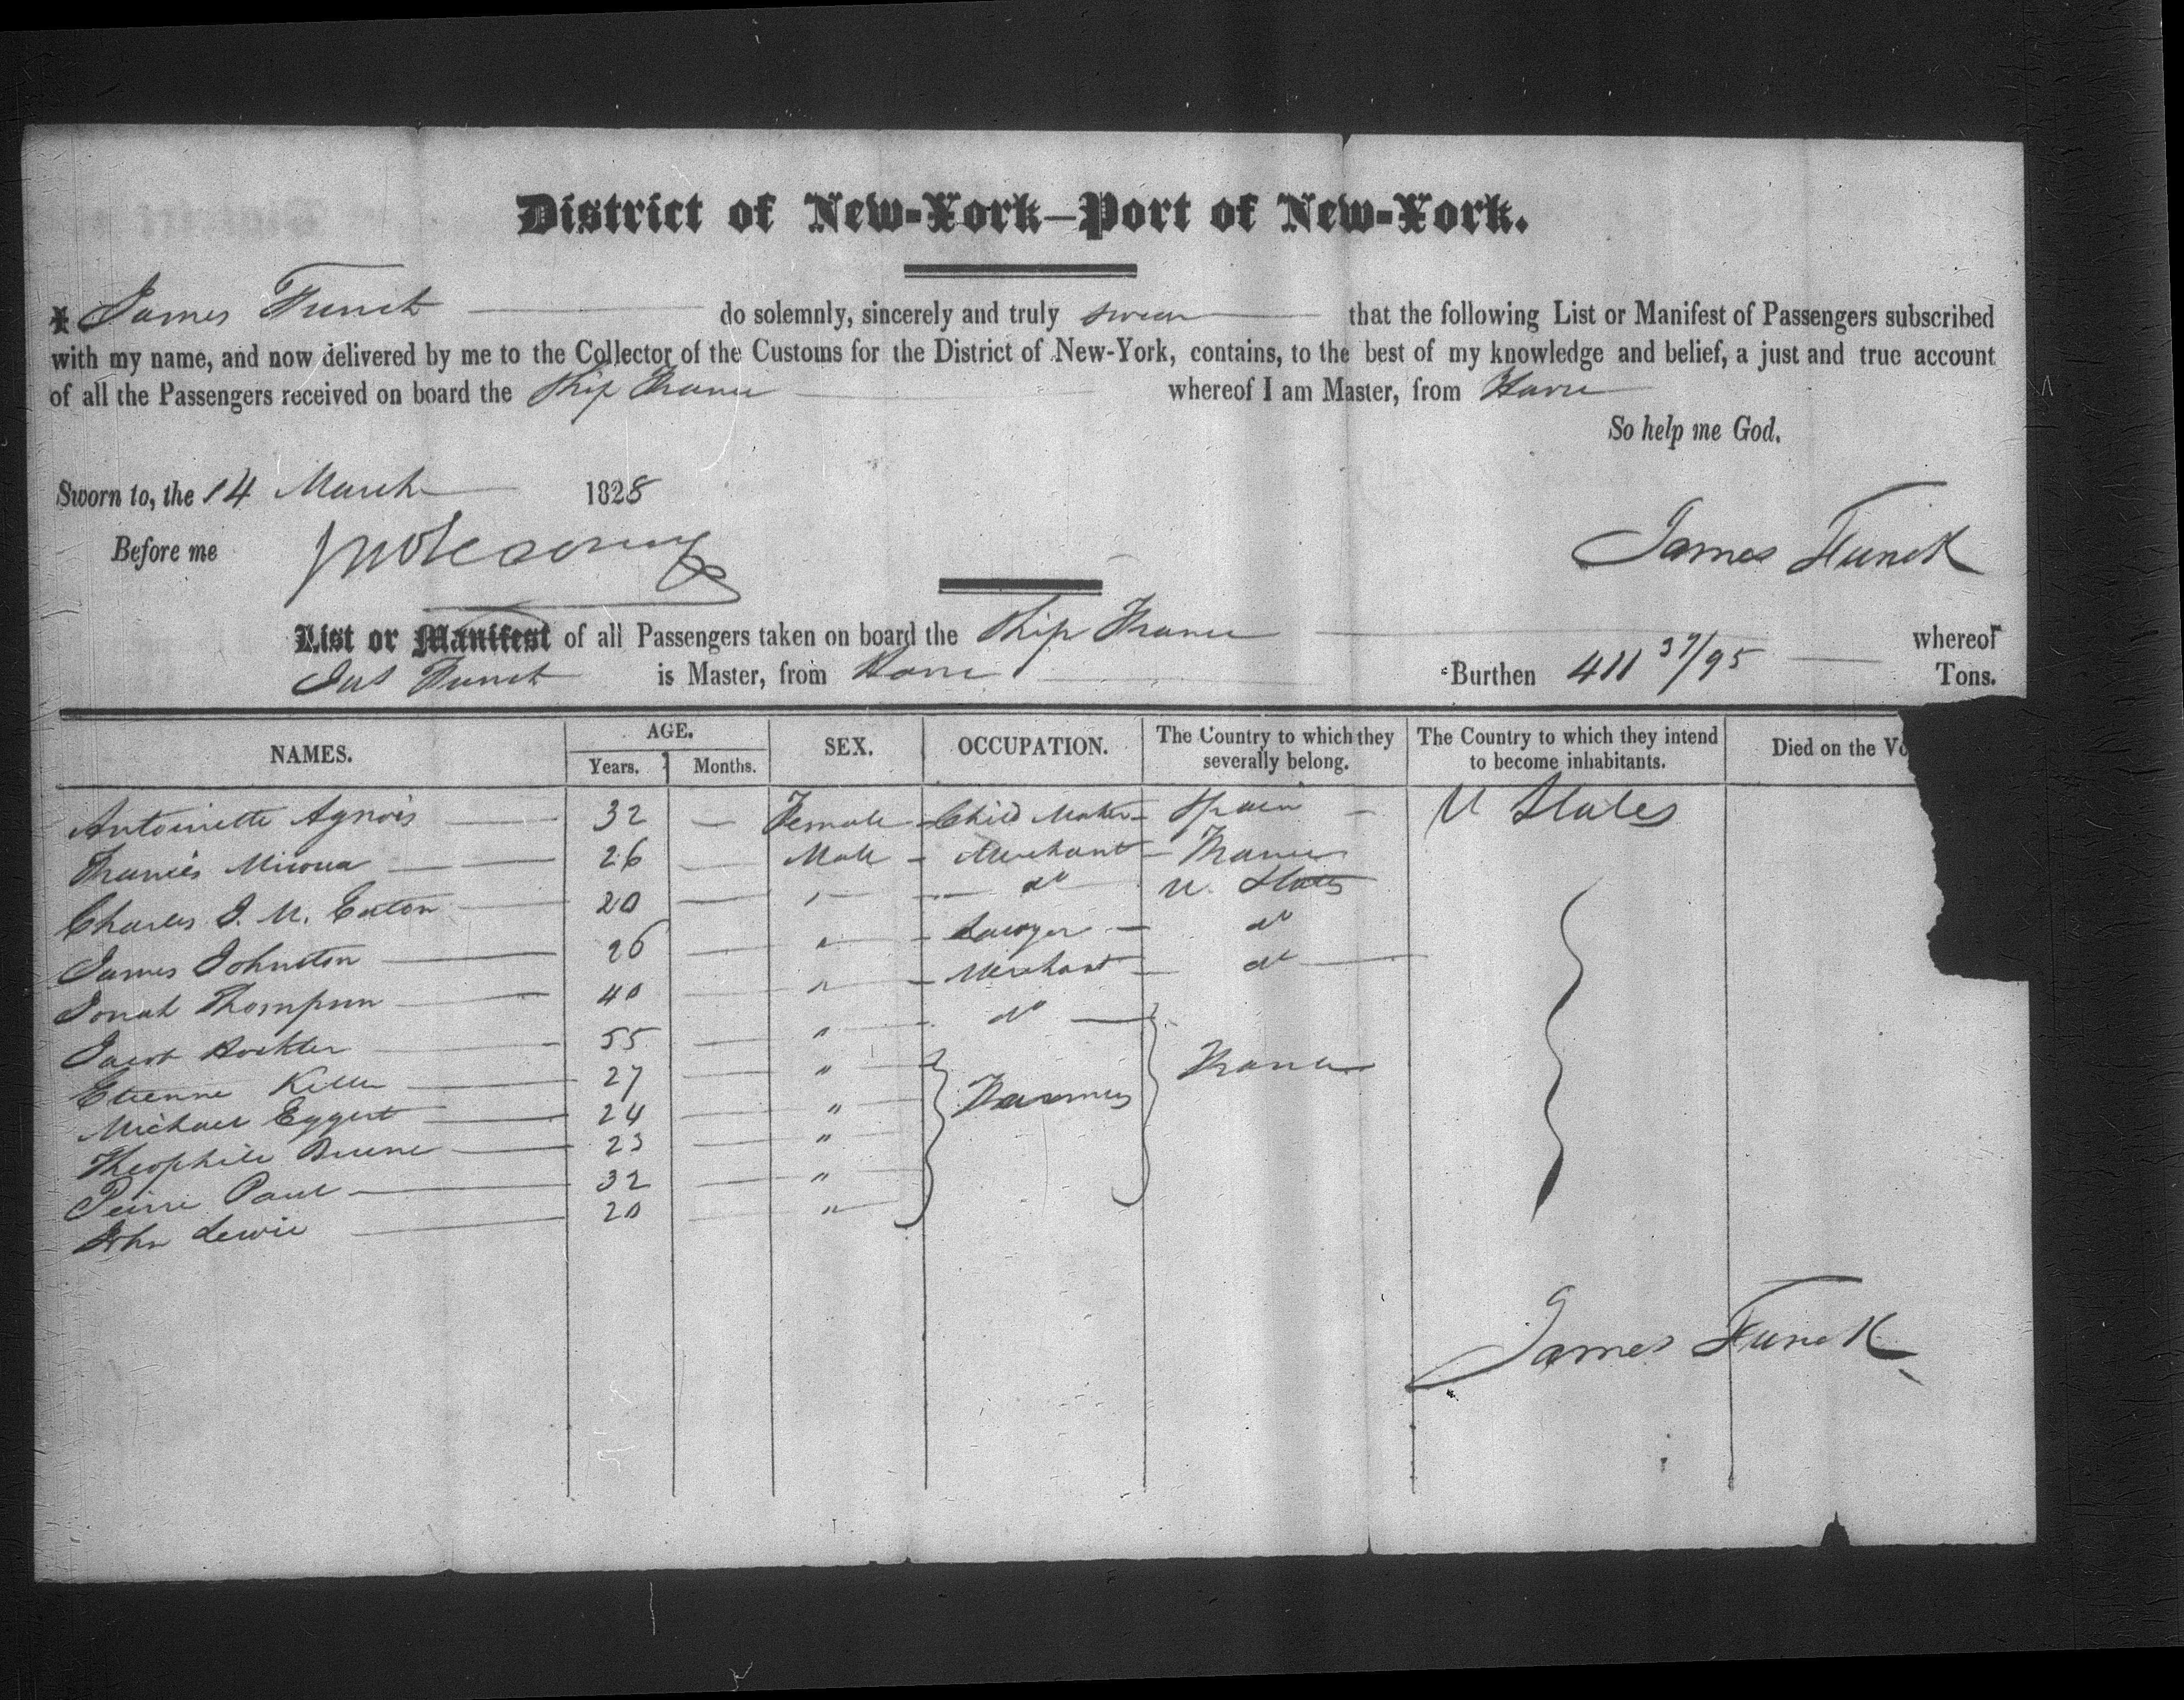 District of New-York—Port of New-York.
I James Funck do solemnly, sincerely and truly swear that the following List or Manifest of Passengers subscribed
with my name, and now delivered by me to the Collector of the Customs for the District of New-York, contains, to the best of my knowledge and belief, a just and true account
of all the Passengers received on board the Ship France whereof I am Master, from Havre
So help me God.
Sworn to, the 14 March 1828
Before me
James Funck
List or Manifest of all Passengers taken on board the Ship France whereof
Jas Funck is Master, from Havre Burthen 411 37/95 Tons.
NAMES. AGE. SEX. OCCUPATION. The Country to which they severally belong. The Country to which they intend to become inhabitants. Died on the Vo
Years. Months.
Antoinette Agnois 32 — Female Child Maker Spain U States
Francis 26 — Male Merchant France
Charles J. M. Eaton 20 — " do U. States
James Johnston 26 — " Lawyer do
Jonah Thompson 40 — " Merchant do
Jacob 55 — " do
Etienne Keller 27 — " Farmers France
Michael Eggert 24 — "
Theophile 23 — "
Peirre Paul 32 — "
John Lewie 20 — "
James Funck